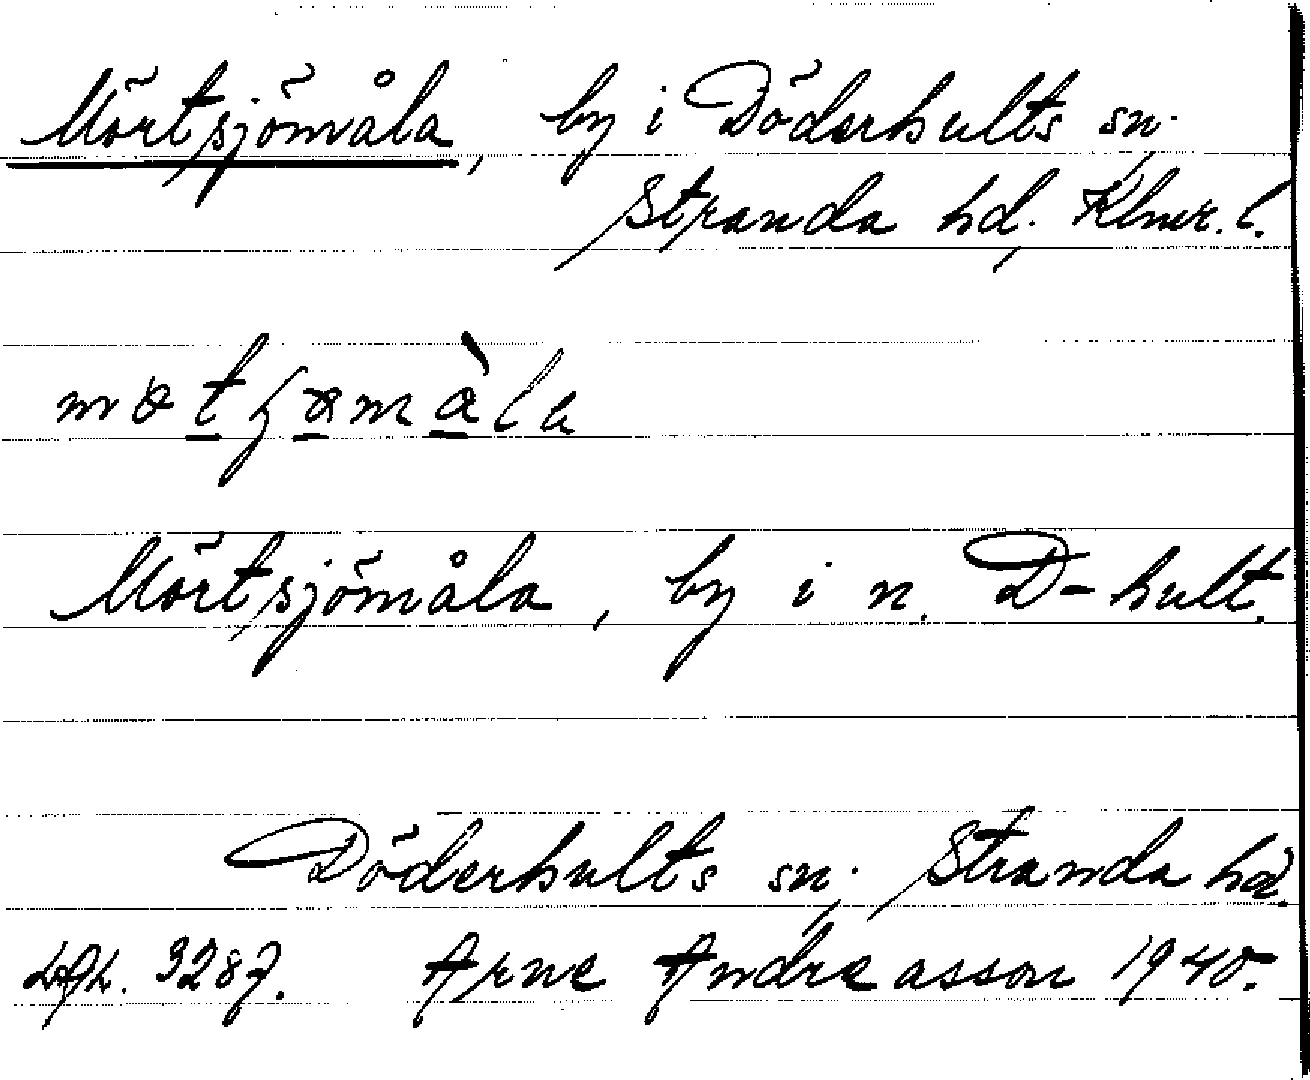 Mörtsjömåla, by i Döderhults sn.
Stranda hd. Klmr. l.
Mörtsjömåla, by i n. D-hult.
Döderhults sn. Stranda hd.
3287. Arne Andreasson 1940.